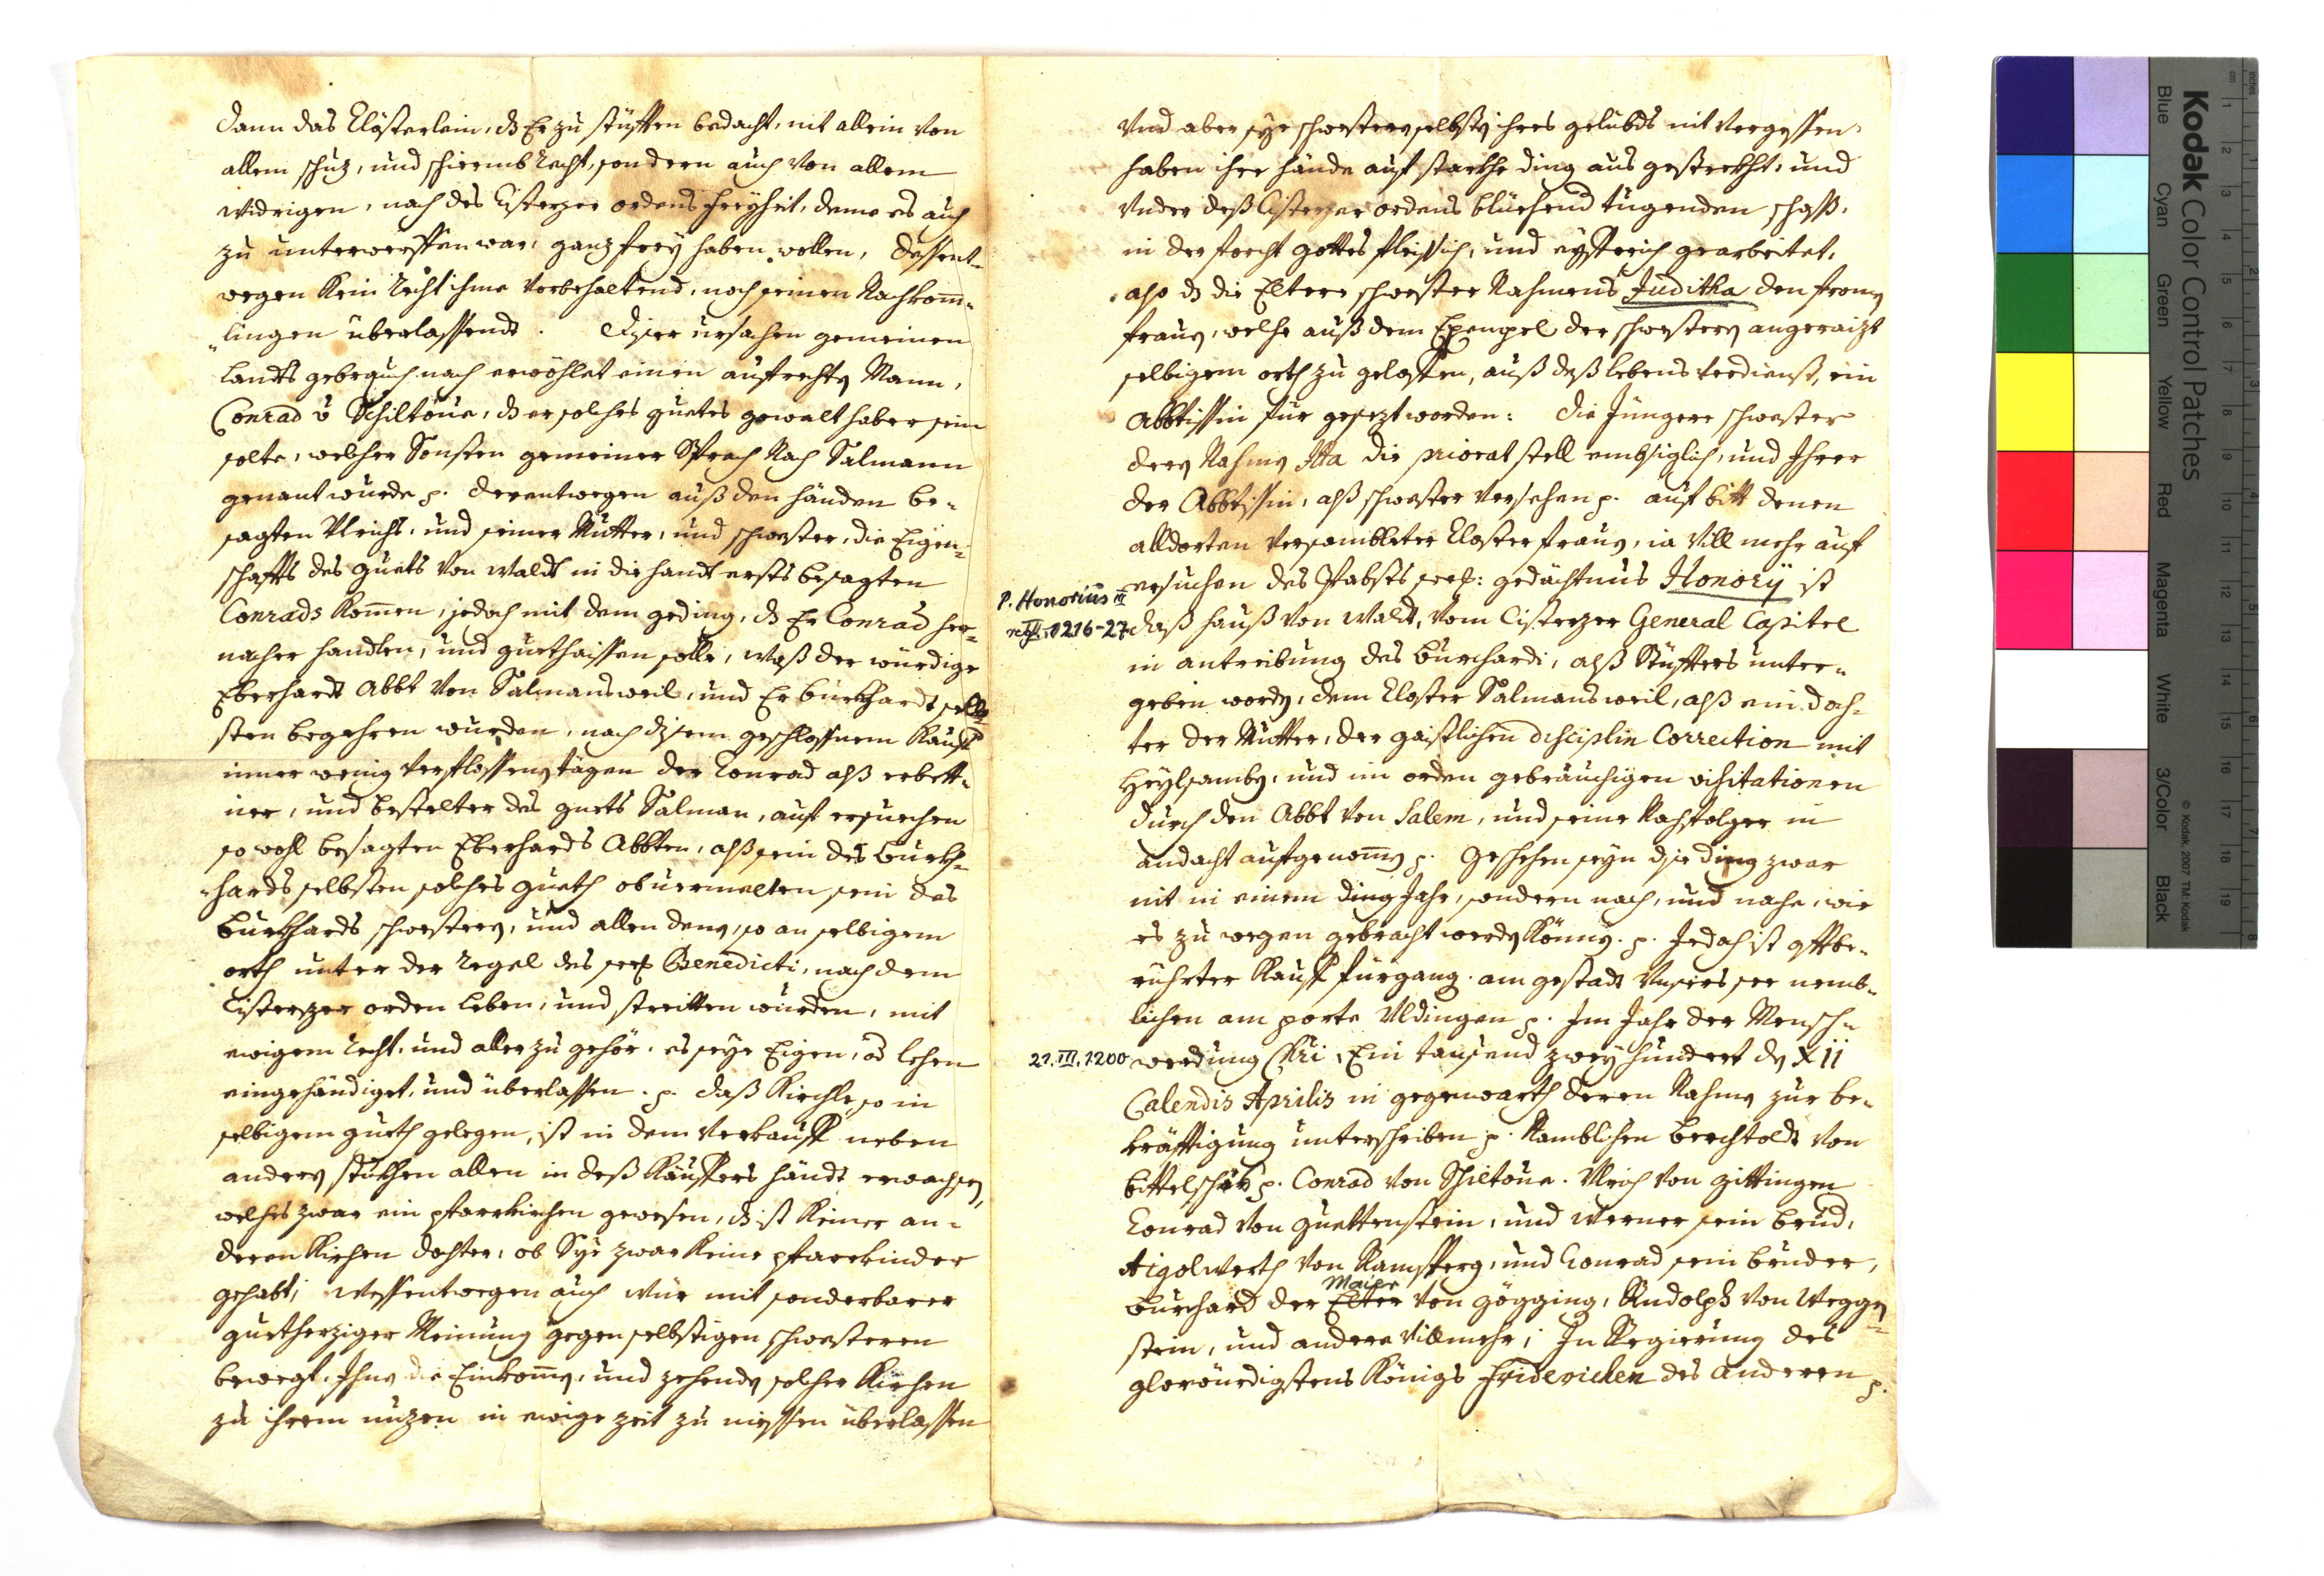 dann das Clösterlein, dz Er zu stüfften bedacht, nit allein von
allem schuz, und schirmb Recht, sondern auch von allem
widrigen, nach des Cisterzer ordens freyheit, deme es auch
zu unterwerffen war, ganz frey haben wollen, dessent-
wegen kein Recht ihme vorbehaltend, noch seinen Nachkom̄-
lingen überlassendt. Diser ursachen gemeinen
landts gebrauch nach erwöhlet einen aufrechten Mann,
Conrad v Schiltoue, dz er solches guetes gewalthaber sein
solte, welcher Sonsten gemeiner Sprach Nach Salmann
genant wurde p. derentwegen auß den händen be-
sagten Ulrichs, und seiner Mutter, und schwester, die Eigen-
schafft des guets von Waldt in die handt erst besagten
Conrads kom̄en, jedoch mit dem geding, dz Er Conrad her-
nacher handlen, und guethaissen solle, waß der würdige
Eberhardt Abbt von Salmansweil, und Er burkhardt selb-
sten begehren wurden, nach disem geschlossnem kauff
inner wenig verflossenen tägen der Conrad alß erbett-
ner, und bestelter des guets Salman, auf ersuechen
so wohl besagten Eberhards Abbten, alß sein des Burkh-
hards selbsten solches gueth obuermelten sein des
Burkhards schwestern, und allen denen, so an selbigem
orth unter der Regel des seel Benedicti, nach dem
Cisterzer orden leben, und streitten wurden, mit
ewigem Recht, und aller zu gehör, es seye Eigen, od lehen
eingehändiget, und überlassen. p. daß Kirchle, so in
selbigem gueth gelegen, ist in dem verkauff neben
andern stukhen allen in deß kauffers händt erwachsen,
welches zwar ein pfarrkirchen gewesen, dz ist keiner an-
deren kirchen dochter, ob Sye zwar keine pfarrkinder
gehabt; wessentwegen auch wür mit sonderbarer
guetherziger Meinung gegen selbstigen schwesteren
bewegt, Ihne die Einkom̄en, und zehenden solcher Kirchen
zu ihrem nuzen in ewige zeit zu niessen überlassen
Vnd aber sye schwestern selbsten ihres gelübds nit vergessen,
haben ihre hände auf starkhe ding aus gestrekht, und
vnder deß Cisterzer ordens blüehend tugenden schoß,
in der forcht Gottes fleissich, und eyfferich gearbeitet,
also dz die Eltere schwester Nahmens Juditha den from̄en
frauen, welche auß dem Exempel der schwestern angeraizt
selbigem orth zu geloffen, auß deß lebens verdienst, ein
Abbtissin für gesezt worden: die Jüngere schwester
deren Nahmen Ita die priorat stell embsiglich, und Ihrer
der Abbtissin, alß schwester versehen p. auf bitt denen
alldorten versambleter Closterfrauen, ia vill mehr auf
P. Honorius III ersuchen des Pabsts seel: gedächtnus Honorÿ ist
1216-27 daß hauß von Waldt, vom Cisterzer General Capitel
in antreibung des Burchardi, alß Stüffters unter-
geben worden, dem Closter Salmansweil, alß ein doch-
ter der Mutter, der gaistlichen disciplin Correction mit
heylsamben, und im orden gebräuchigen visitationen
durch den Abbt von Salem, und seine Nachfolger in
andacht aufgenom̄en p. Geschehen seyn dise ding zwar
nit in einem ding Jahr, sondern nach, und nache, wie
es zu wegen gebracht werden können. p. Jedoch ist offtbe-
rührter Kauff fürgang, am gestadt Vnsers see nemb-
lichen am porte Uldingen p. Im Jahr der Mensch-
21.III.1200 werdung Chri, Ein tausend zwey hundert den Xii
Calendis Aprilis in gegenwarth deren Nahmen zur be-
kräfftigung unterschriben p. Namblichen Berchtoldt von
bittelschüß p. Conrad von Schiltoue. Ulrich von Gittingen
Conrad von Guettenstein, und Werner sein brud,
Aigolwerth von Ramsperg, und Conrad sein bruder,
Maier
Burchard der Elter von Gögging, Rudolph von Weggen-
stein, und andere villmehr; In Regierung des
glorwürdigsten Königs Fridericken des Anderen p.
Kodak Color Control Patches
Blue Cyan Green Yellow Red Magenta White 3/Color Black
© Kodak, 2007 TM: Kodak
cm 1 2 3 4 5 6 7 8 9 10 11 12 13 14 15 16 17 18 19
inches 1 2 3 4 5 6 7 8